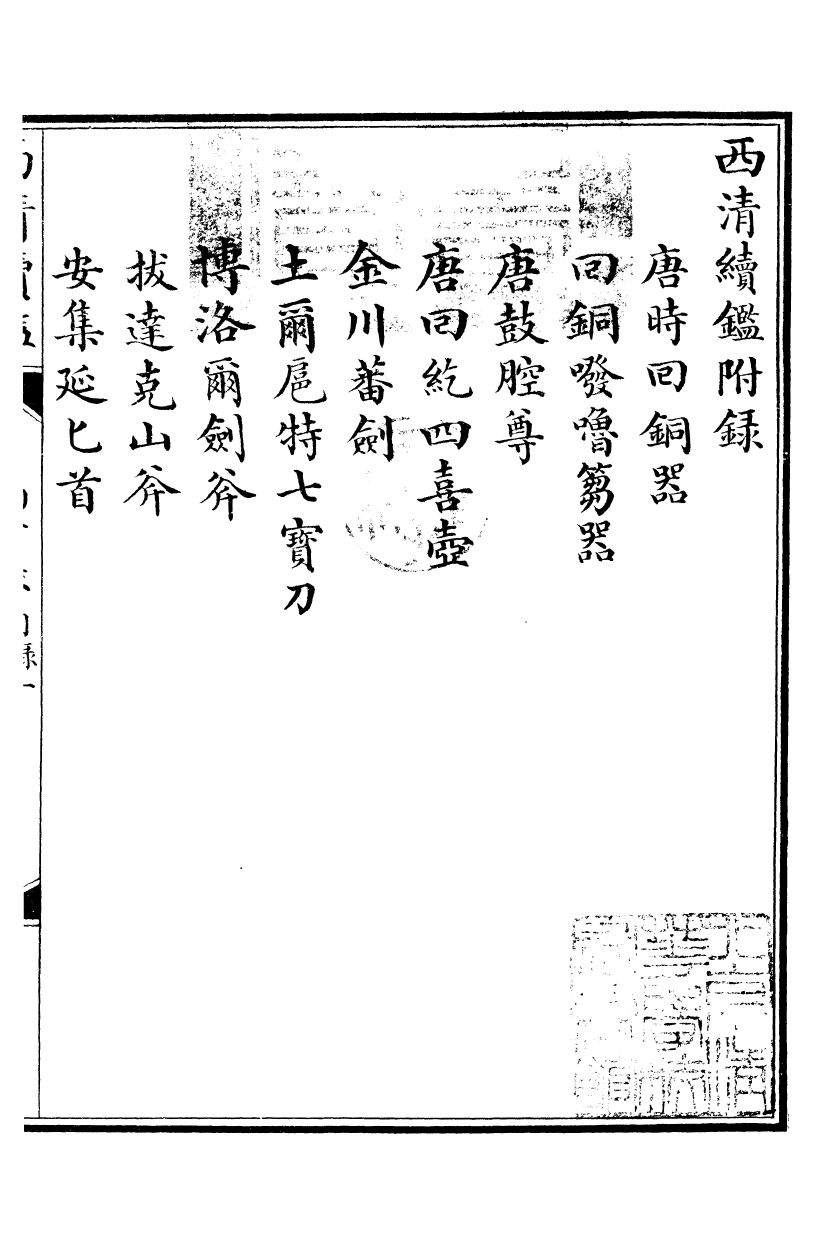 西清續鑑附録
唐時回銅器
回銅嘜嚕蒭器
唐鼓腔尊
唐回紇四喜壺
金川蕃劍
土爾扈特七寶刀
博洛爾劍斧
拔達克山斧
安集延匕首